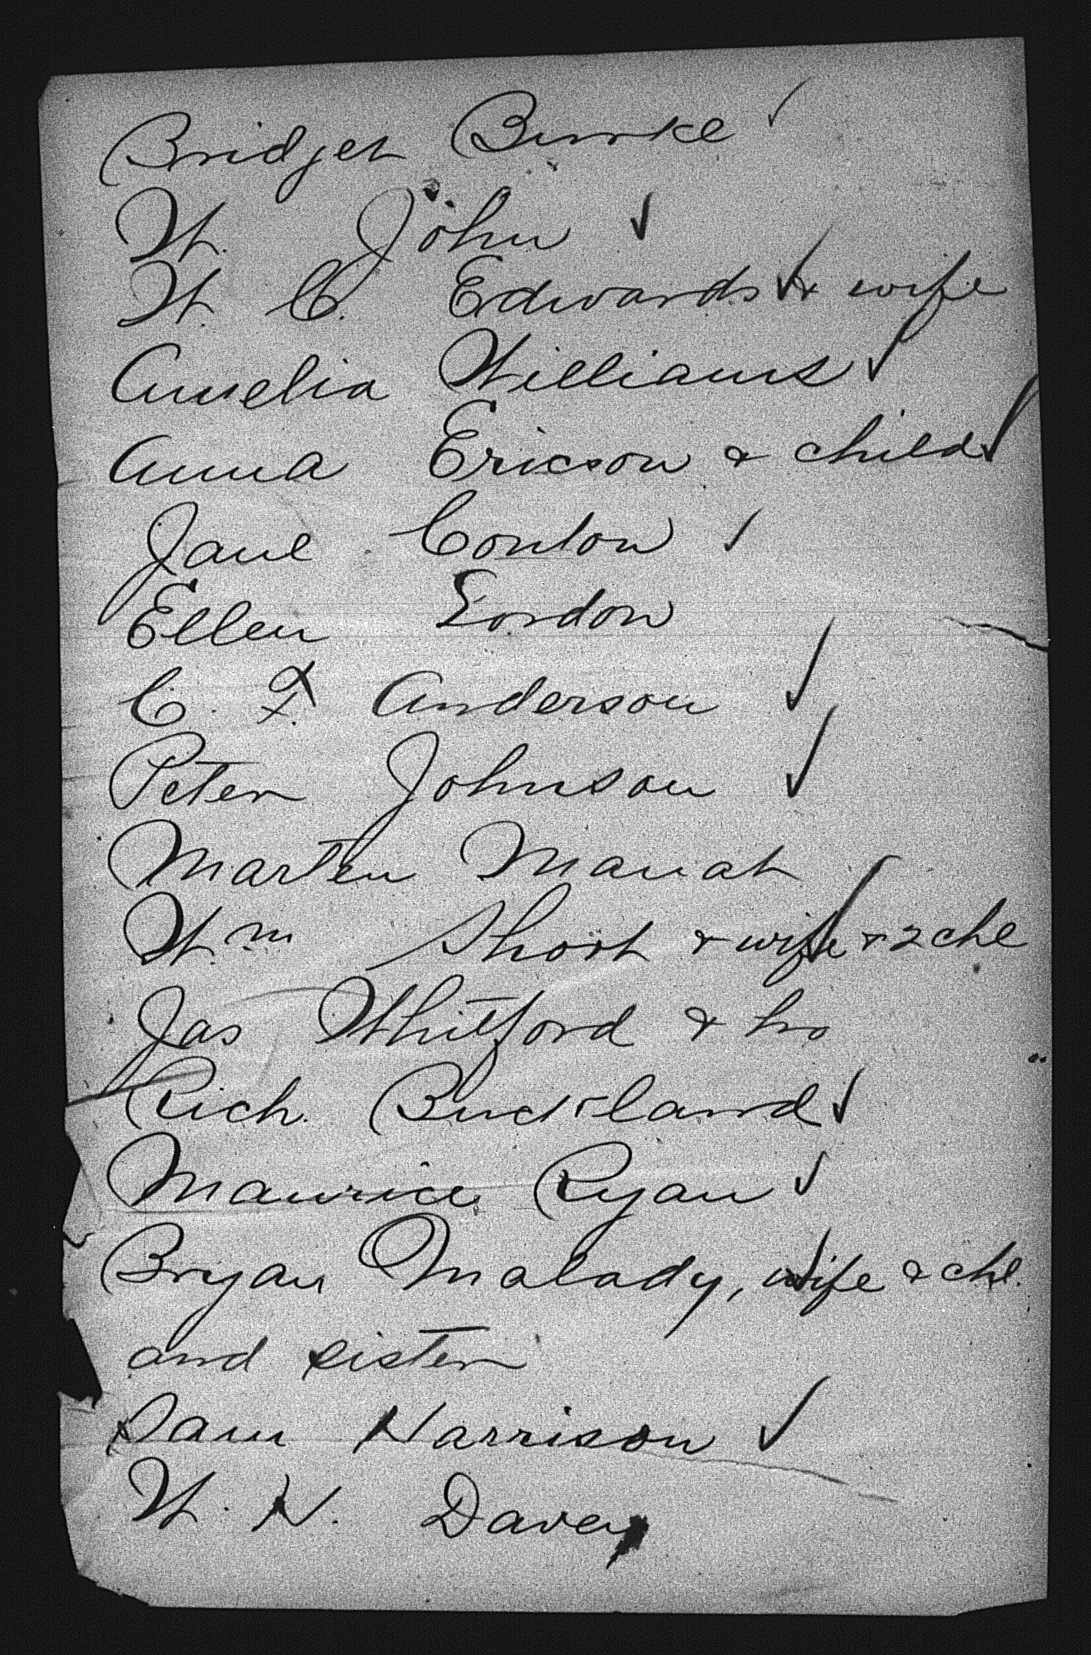 Bridget Burke ✓
W. John ✓
W. C. Edwards ✓ & wife
Amelia Williams ✓
Anna Ericson & child ✓
Jane Conlon ✓
Ellen Gordon
C. F. Anderson ✓
Peter Johnson ✓
Marten Manat
Wm Short & wife & 2 chl ✓
Jas Whitford & bro
Rich. Buckland ✓
Maurice Ryan ✓
Bryan Malady, wife & chl. ✓
and sister
Sam Harrison ✓
W. H. Davey